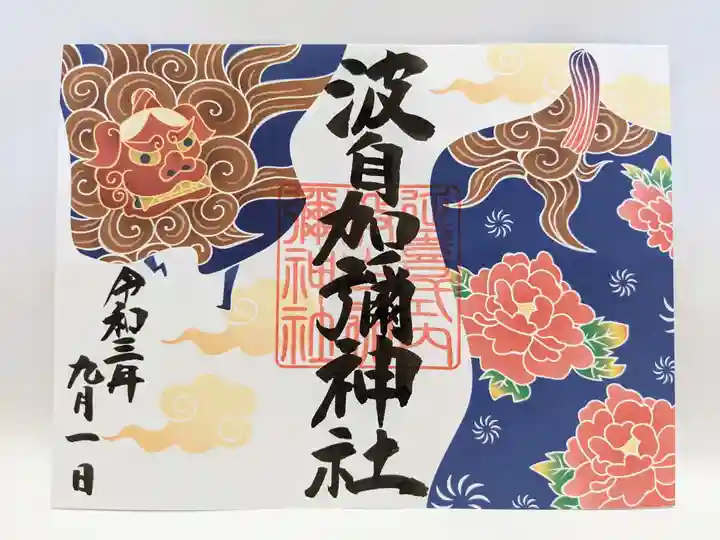 波自加彌神社
延喜式内
波自加
彌神社
令和三年
九月一日